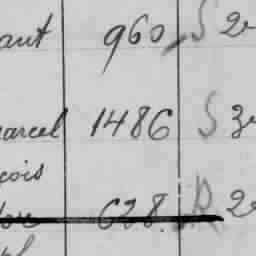 ant 960 S 2
arcel 1486 S 3
çois
628 R 2